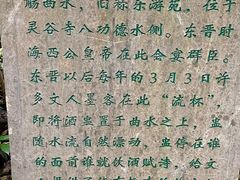 觞曲水,旧称东游苑,位于
灵谷寺八功德水侧。东晋时
海西公皇帝在此会宴群臣。
东晋以后每年的3月3日许
多文人墨客在此“流杯”,
即将酒盅置于曲水之上,盅
随水流自然漂动,盅停在谁
的面前谁就饮酒赋诗,给文